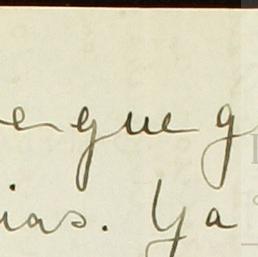 e que g
ias. Ya